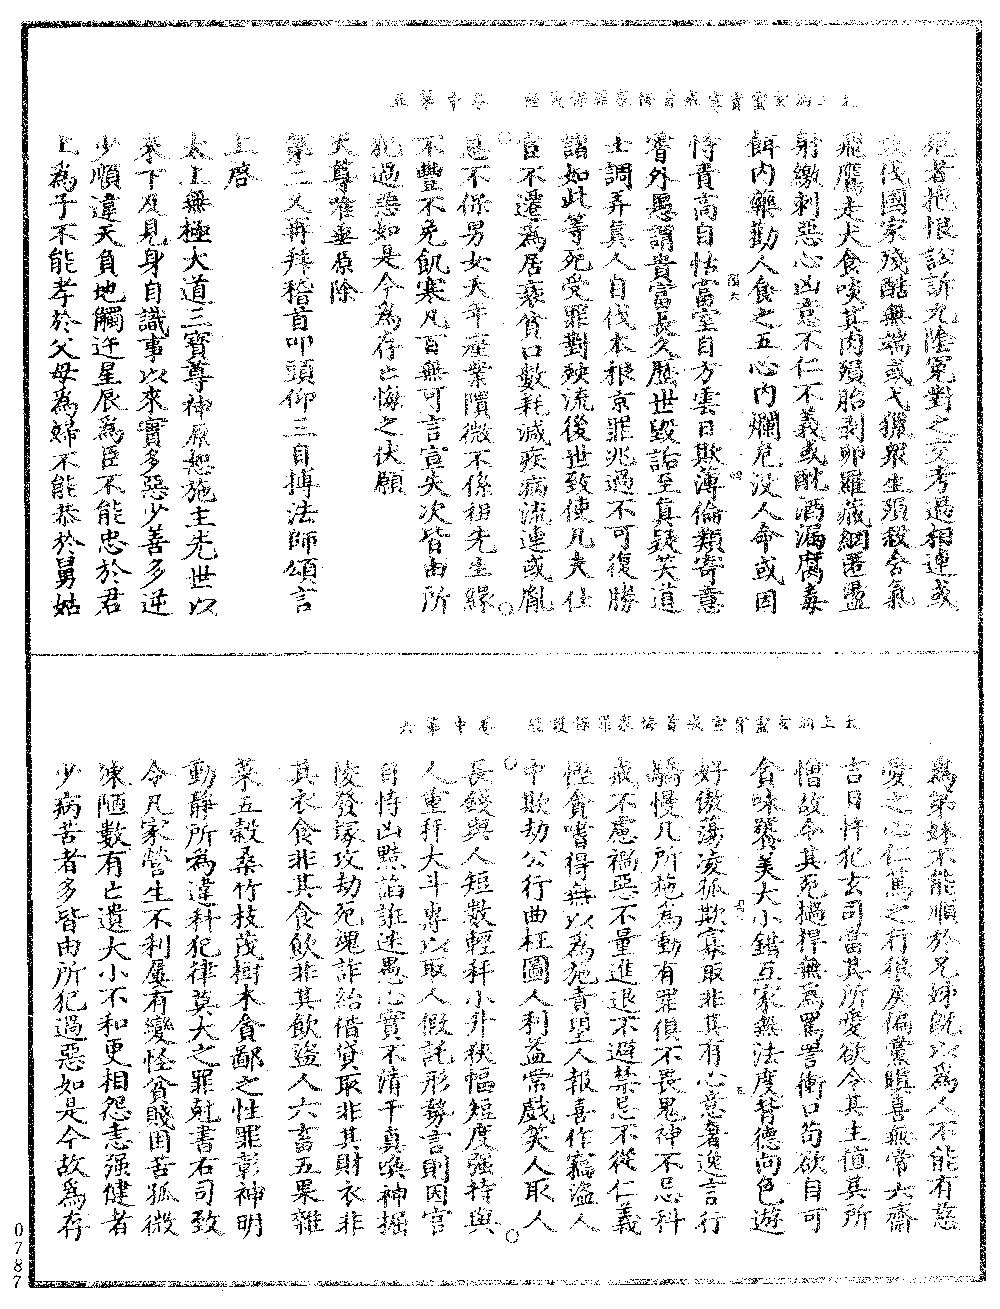 太上洞玄靈寶宣戒首悔眾罪保護經 卷中第五
死者抱恨訟訴九陰冤對之文考過相連或
攻伐國家殘酷無端或弋獵眾生殞殺含氣
飛鷹走犬食啖其肉殰胎剖卵羅藏網匿盪
射繳刺惡心凶意不仁不義或酖酒漏腐毒
餌內藥勸人食之五心內爛危沒人命或因
恃貴高自怙富室自方雲日欺薄倫類寄意
耆外愚謂貴富長久歷世毀詬至真疑笑道
士調弄真人自伐本根京罪兆過不可復勝
諸如此等死受罪對殃流後世致使凡夫仕
官不遷為居衰貧口數耗減疾病流連或胤
息不保男女夭年產業隤微不係祖先生緣
不豐不免飢寒凡百無可言宣失次皆由所
犯過惡如是今為存亡悔之伏願
天尊唯垂原除
第二又再拜稽首叩頭仰三自搏法師頌言
上啓
太上無極大道三寶尊神願恕施主先世以
來下及見身自識事以來實多惡少善多逆
少順違天負地觸迕星辰為臣不能忠於君
上為子不能孝於父母為婦不能恭於舅姑
太上洞玄靈寶宣戒首悔眾罪保護經 卷中第六
為弟妹不能順於兄姊既以為人不能有慈
愛之心仁篤之行狼戾偏黨瞋喜無常大齋
吉日恃犯玄司當其所愛欲令其生值其所
憎故令其死撾捍無罵詈衝口苟欲自可
貪味饕美大小錯互家無法度替德向色遊
好傲蕩凌孤欺寡取非其有心意奢逸言行
驕慢凡所施為動有罪俱不畏鬼神不忌科
戒不慮禍惡不量進退不避禁忌不從仁義
慳貪嗜得無以為施責望人報喜作竊盜人
中欺劫公行曲枉圖人利益常戲笑人取人
長錢與人短數輕秤小升狹幅短度強持與
人重秤大斗專以取人假託形勢言則因官
自恃凶黠諂誑迷愚心實不清干真喚神掘
陵發塚攻劫死魂詐紿借貸取非其財衣非
其衣食非其食飲非其飲盜人六畜五果雜
菜五穀桑竹枝茂樹木貪鄙之性罪彰神明
動靜所為違科犯律莫大之罪剋書右司致
令凡家營生不利屢有變怪貧賤困苦孤微
涷陋數有亡遺大小不和更相怨恚强健者
少病苦者多皆由所犯過惡如是今故為存
0787